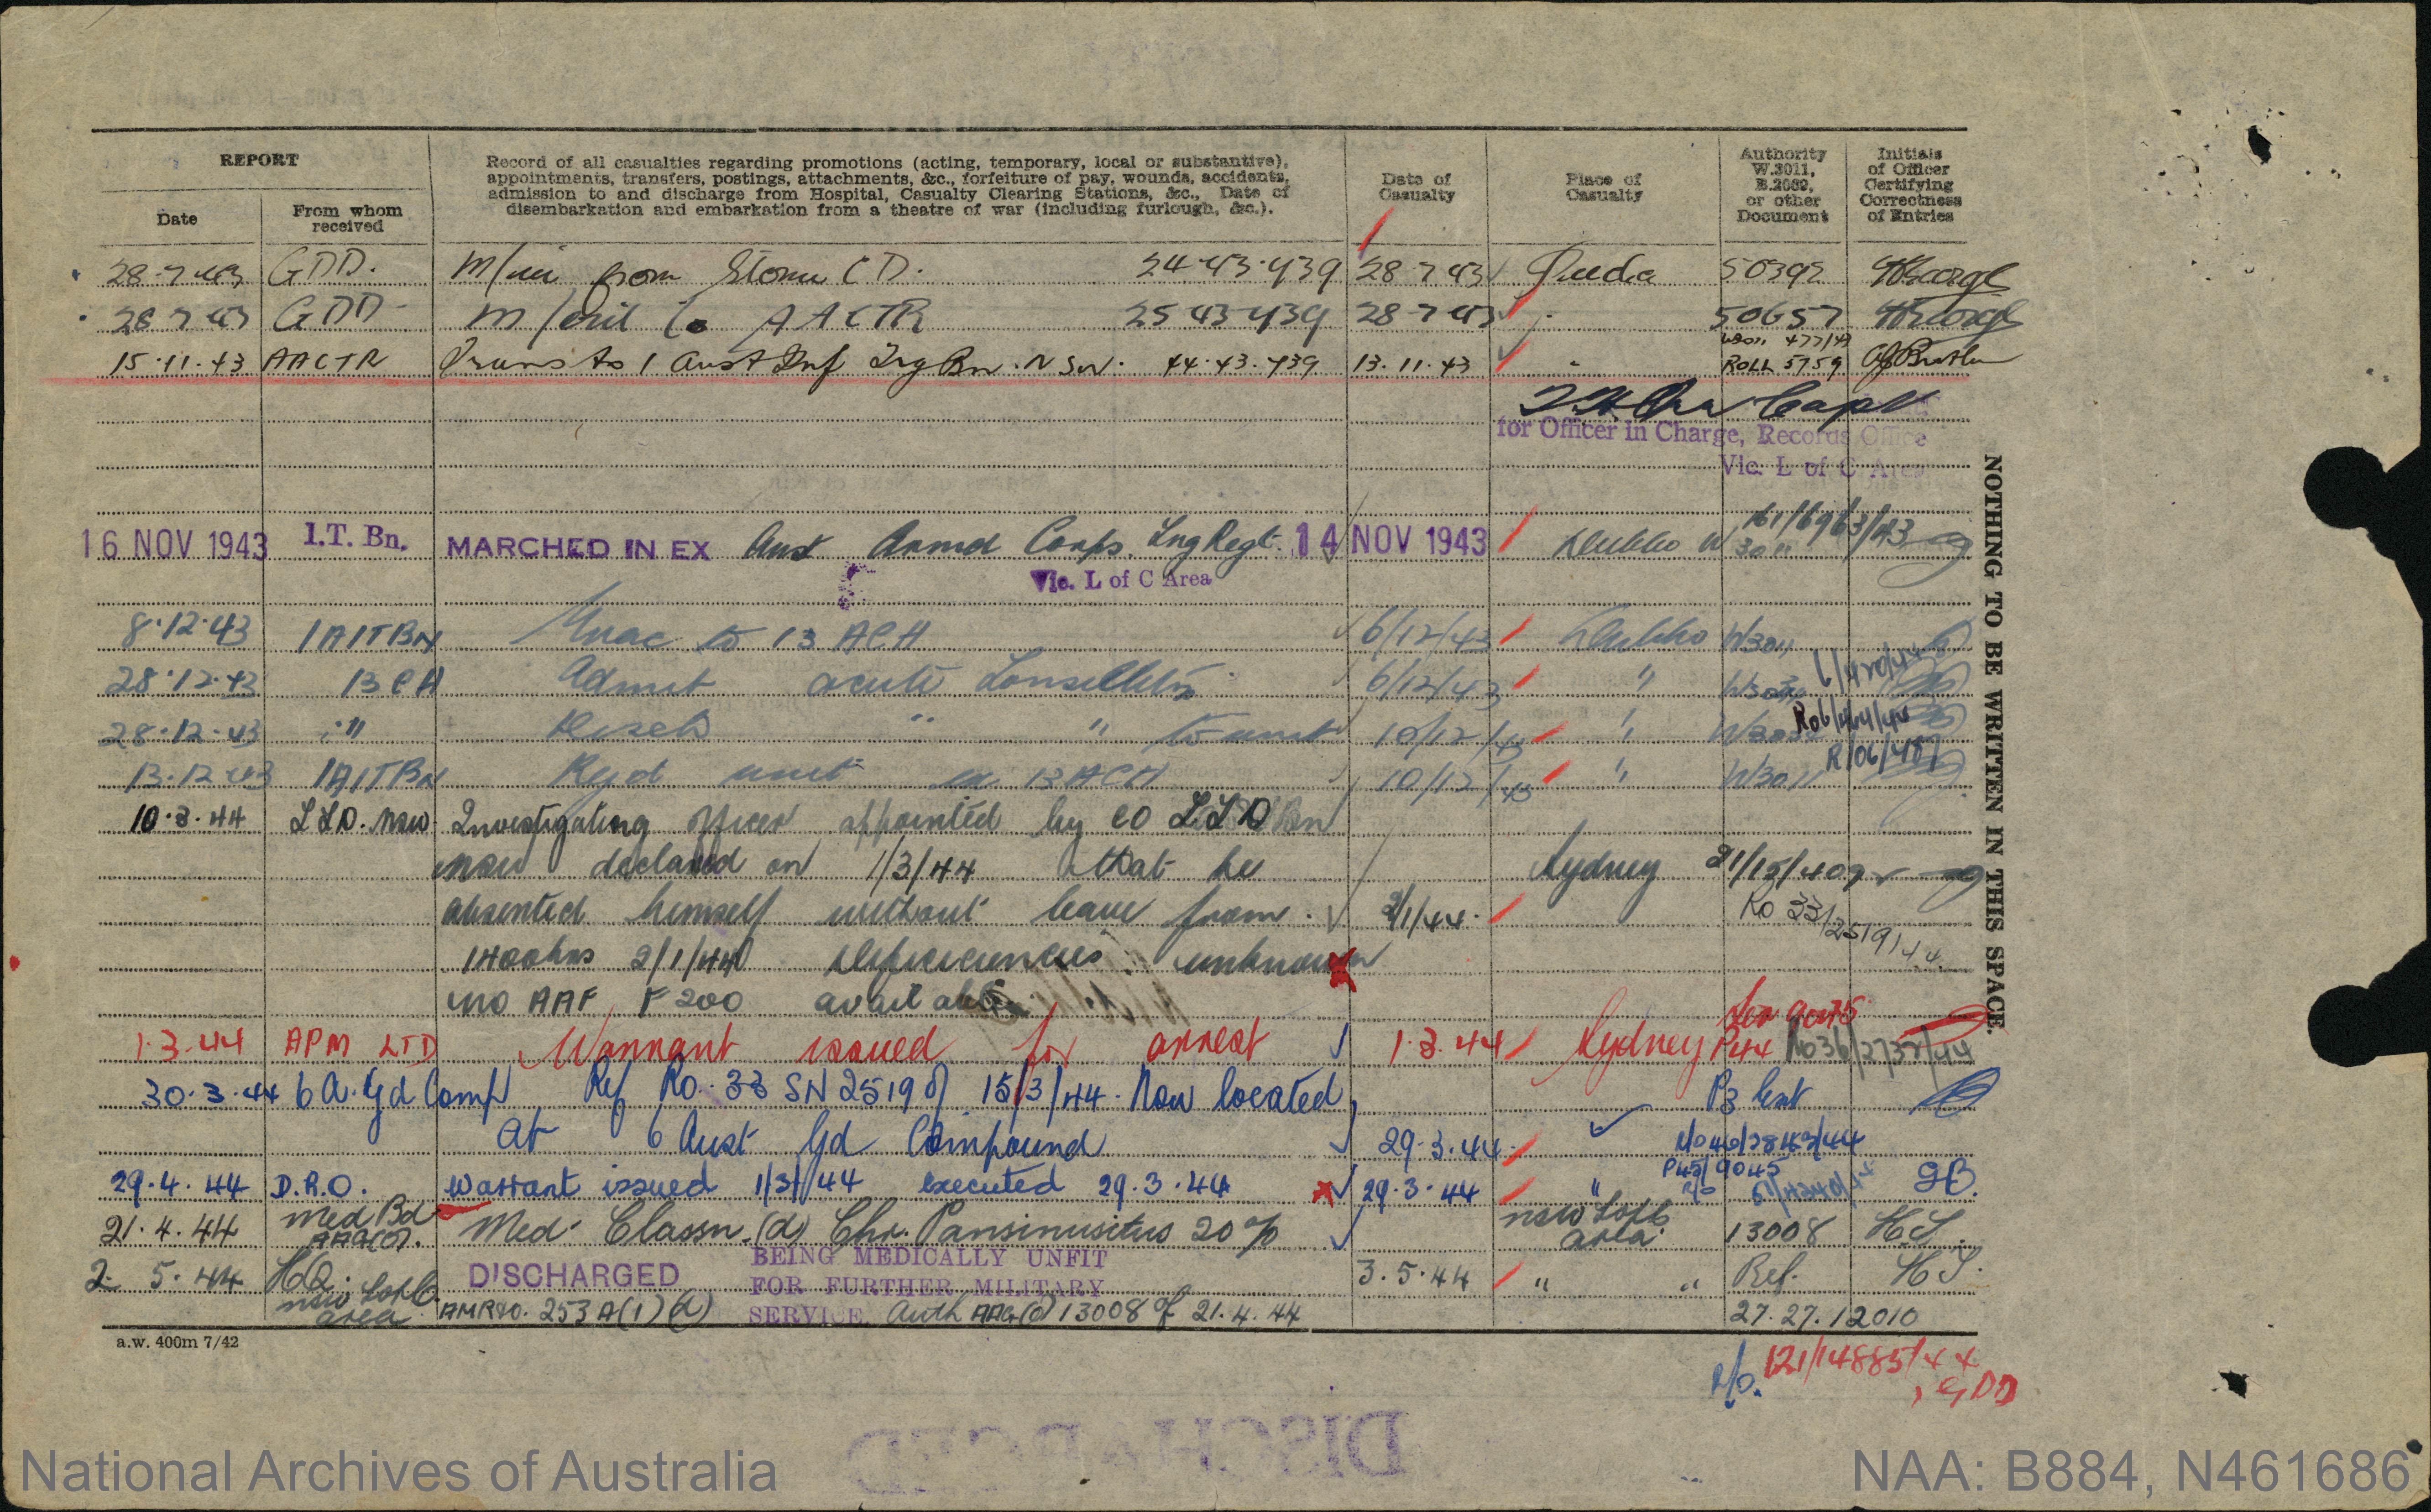 REPORT
Date
From whom received
Record of all casualties regarding promotions (acting, temporary, local or substantive),
appointments, transfers, postings, attachments, &c., forfeiture of pay, wounds, accidents,
admission to and discharge from Hospital, Casualty Clearing Stations, &c., Date of
disembarkation and embarkation from a theatre of war (including furlough, &c.).
Date of Casualty
Place of Casualty
Authority W.3011, B.2069, or other Document
Initials of Officer Certifying Correctness of Entries
28.7.43 GDD. M/in from Stomu CD. 24.43.439 28.7.43 50392
28.7.43 GDD M/out to AACTR 25 43 439 28-7-43 50657
15.11.43 AACTR Trans to 1 Aust Inf Trg Bn. NSW. 44.43.439 13.11.43 ROLL 5759
Capt
for Officer in Charge, Records Office
Vic. L of C Area
16 NOV 1943 I.T. Bn. MARCHED IN EX Aust Armd Corps. Trg Regt. 14 NOV 1943 Dubbo W 3011 161/6963/43
Vic. L of C Area
8.12.43 1AITBN Evac to 13 ACH 6/12/43 Dubbo W3011
28.12.43 13 CH Admit acute Tonsillitis 6/12/43 " 6/420/44
28.12.43 " " " to unit 10/12/43 " R06/464/44
13.12.43 1AITBN Rejd unit ex 13 ACH 10/12/43 " W3011
10.3.44 LTD. NSW Investigating officer appointed by CO LTD Bn
NSW declared on 1/3/44 that he Sydney
absented himself without leave from 2/1/44. Ro 33/2519/44
1400hrs 2/1/44 Deficiencies: unknown
no AAF F 200 available
1.3.44 APM LTD Warrant issued for arrest 1.3.44 Sydney Ro36/2732/44
30.3.44 6 A. Gd Comp Ref Ro. 33 SN 2519 of 15/3/44. Now located
at 6 Aust Gd Compound 29.3.44
29.4.44 D.R.O. Warrant issued 1/3/44 executed 29.3.44 29.3.44 " P45/9045
21.4.44 Med Bd AAG(O). Med Classn. (d) Chr. Pansinusitis 20% NSW LofC area 13008 HS.
2.5.44 HQ. NSW LofC area DISCHARGED BEING MEDICALLY UNFIT FOR FURTHER MILITARY SERVICE. 3.5.44 " " Ref. HS.
AMR&O. 253A(1)(d) Auth AAG(O) 13008 of 21.4.44 27.27.12010
a.w. 400m 7/42
R/O. 121/14885/44, GDD
NOTHING TO BE WRITTEN IN THIS SPACE.
DISCHARGED
National Archives of Australia
NAA: B884, N461686